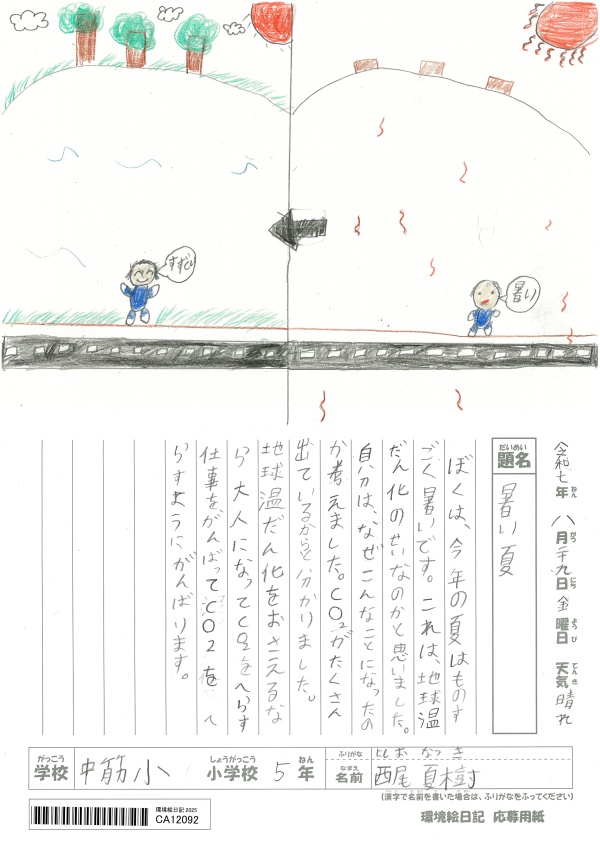 すずしい
暑い
令和七年 八月二十九日 金曜日 天気 晴れ
ねん がつ にち ようび てんき
だいめい
題名 暑い夏
ぼくは、今年の夏はものす
ごく暑いです。これは、地球温
だん化のせいなのかと思いました。
自分は、なぜこんなことになったの
か考えました。CO2がたくさん
出ているからと分かりました。
地球温だん化をおさえるな
ら大人になってCO2をへらす
仕事をがんばってCO2をへ
らすようにがんばります。
がっこう しょうがっこう ねん ふりがな にしお なつき
学校 中筋小 小学校 5年 なまえ 名前 西尾夏樹
(漢字で名前を書いた場合は、ふりがなをふってください)
環境絵日記 2025
CA12092
環境絵日記 応募用紙